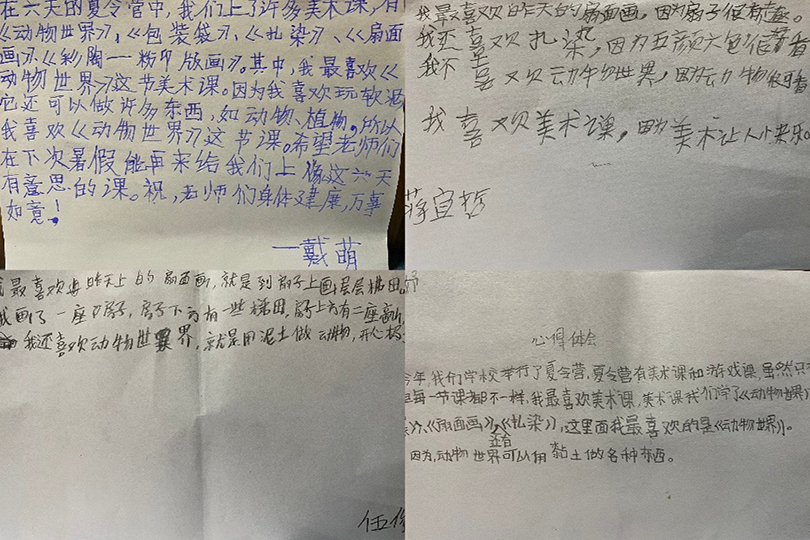 在六天的夏令营中,我们上了许多美术课,有
《动物世界》,《包装袋》,《扎染》、《扇面
画》、《彩陶一粉印版画》。其中,我最喜欢《
动物世界》这节美术课。因为我喜欢玩软泥
它还可以做许多东西,如动物、植物,所以
我喜欢《动物世界》这节课。希望老师们
在下次暑假能再来给我们上像这六天
有意思的课。祝,老师们身体建康,万事
如意!
一戴萌
我最喜欢昨天的扇面画,因为扇子很有趣。
我还喜欢扎染,因为五颜六色很
我不 喜欢动物世界,因为动物很可
我喜欢美术课,因为美术让人小快乐。
蒋宜哲
我最喜欢 昨天上的扇面画,就是到扇子上画层层梯田。
我画了一座房子,房子下方有一些梯田,房子上方有二座高
我还喜欢动物世界,就是用泥土做动物,开心极
伍
心得体会
今年,我们学校举行了夏令营,夏令营有美术课和游戏课,虽然只
每一节课都不一样,我最喜欢美术课,美术课我们学了《动物世界》
《扇面画》,《扎染》,这里面我最喜欢的是《动物世界》。
还有
因为,动物世界可以用黏土做各种东西。